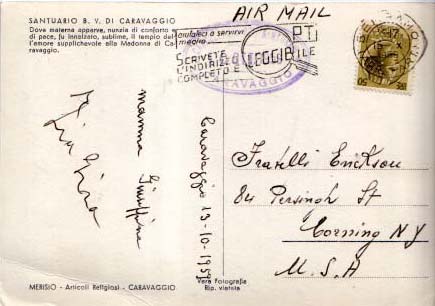 SANTUARIO B. V. DI CARAVAGGIO
Dove materna apparve, nunzia di conforto e
di pace, fu innalzato, sublime, il tempio del-
l'amore supplichevole alla Madonna di Ca-
ravaggio.
AIR MAIL
aiutateci a servirvi
meglio
PT
SCRIVETE
L'INDIRIZZO
COMPLETO E LEGGIBILE
CARAVAGGIO
mamma Giuseppina
Caravaggio 13-10-1959
Fratelli Erickson
84 Pershing St
Corning NY
U.S.A
MERISIO - Articoli Religiosi - CARAVAGGIO
Vera Fotografia
Rip. vietata